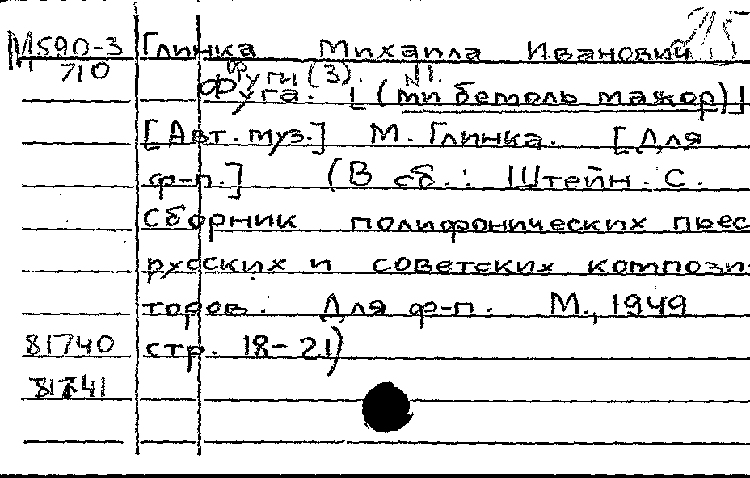 215
М590-3 Глинка Михаила Иванович
710 Фуги (3). №1.
Фуга. [(ми бемоль мажор)]
[Авт. муз.] М. Глинка. [Для
ф-п.] (В сб.: Штейн. С.
Сборник полифонических пьес
русских и советских компози-
торов. Для ф-п. М., 1949
81740 стр. 18-21)
81741